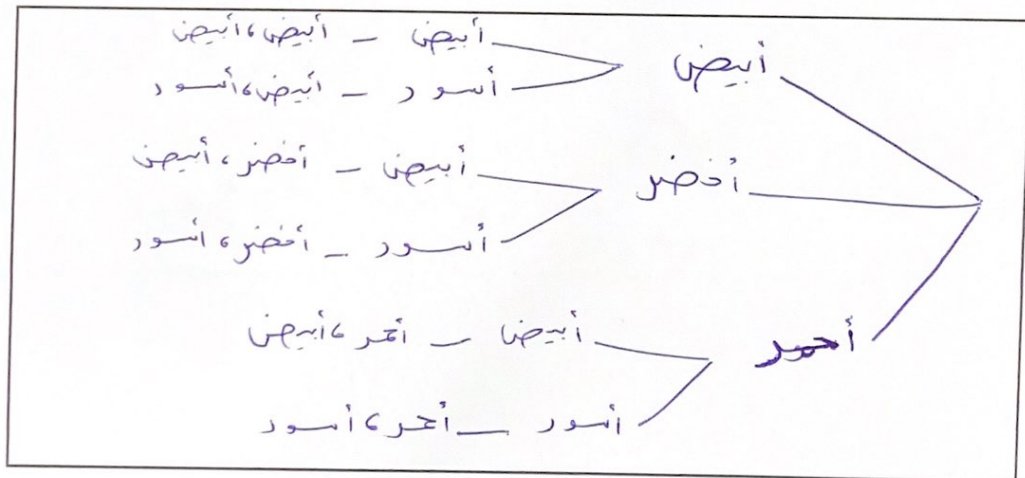 أبيض
أبيض – أبيض، أبيض
أسود – أبيض، أسود
أخضر
أبيض – أخضر، أبيض
أسود – أخضر، أسود
أحمر
أبيض – أحمر، أبيض
أسود – أحمر، أسود